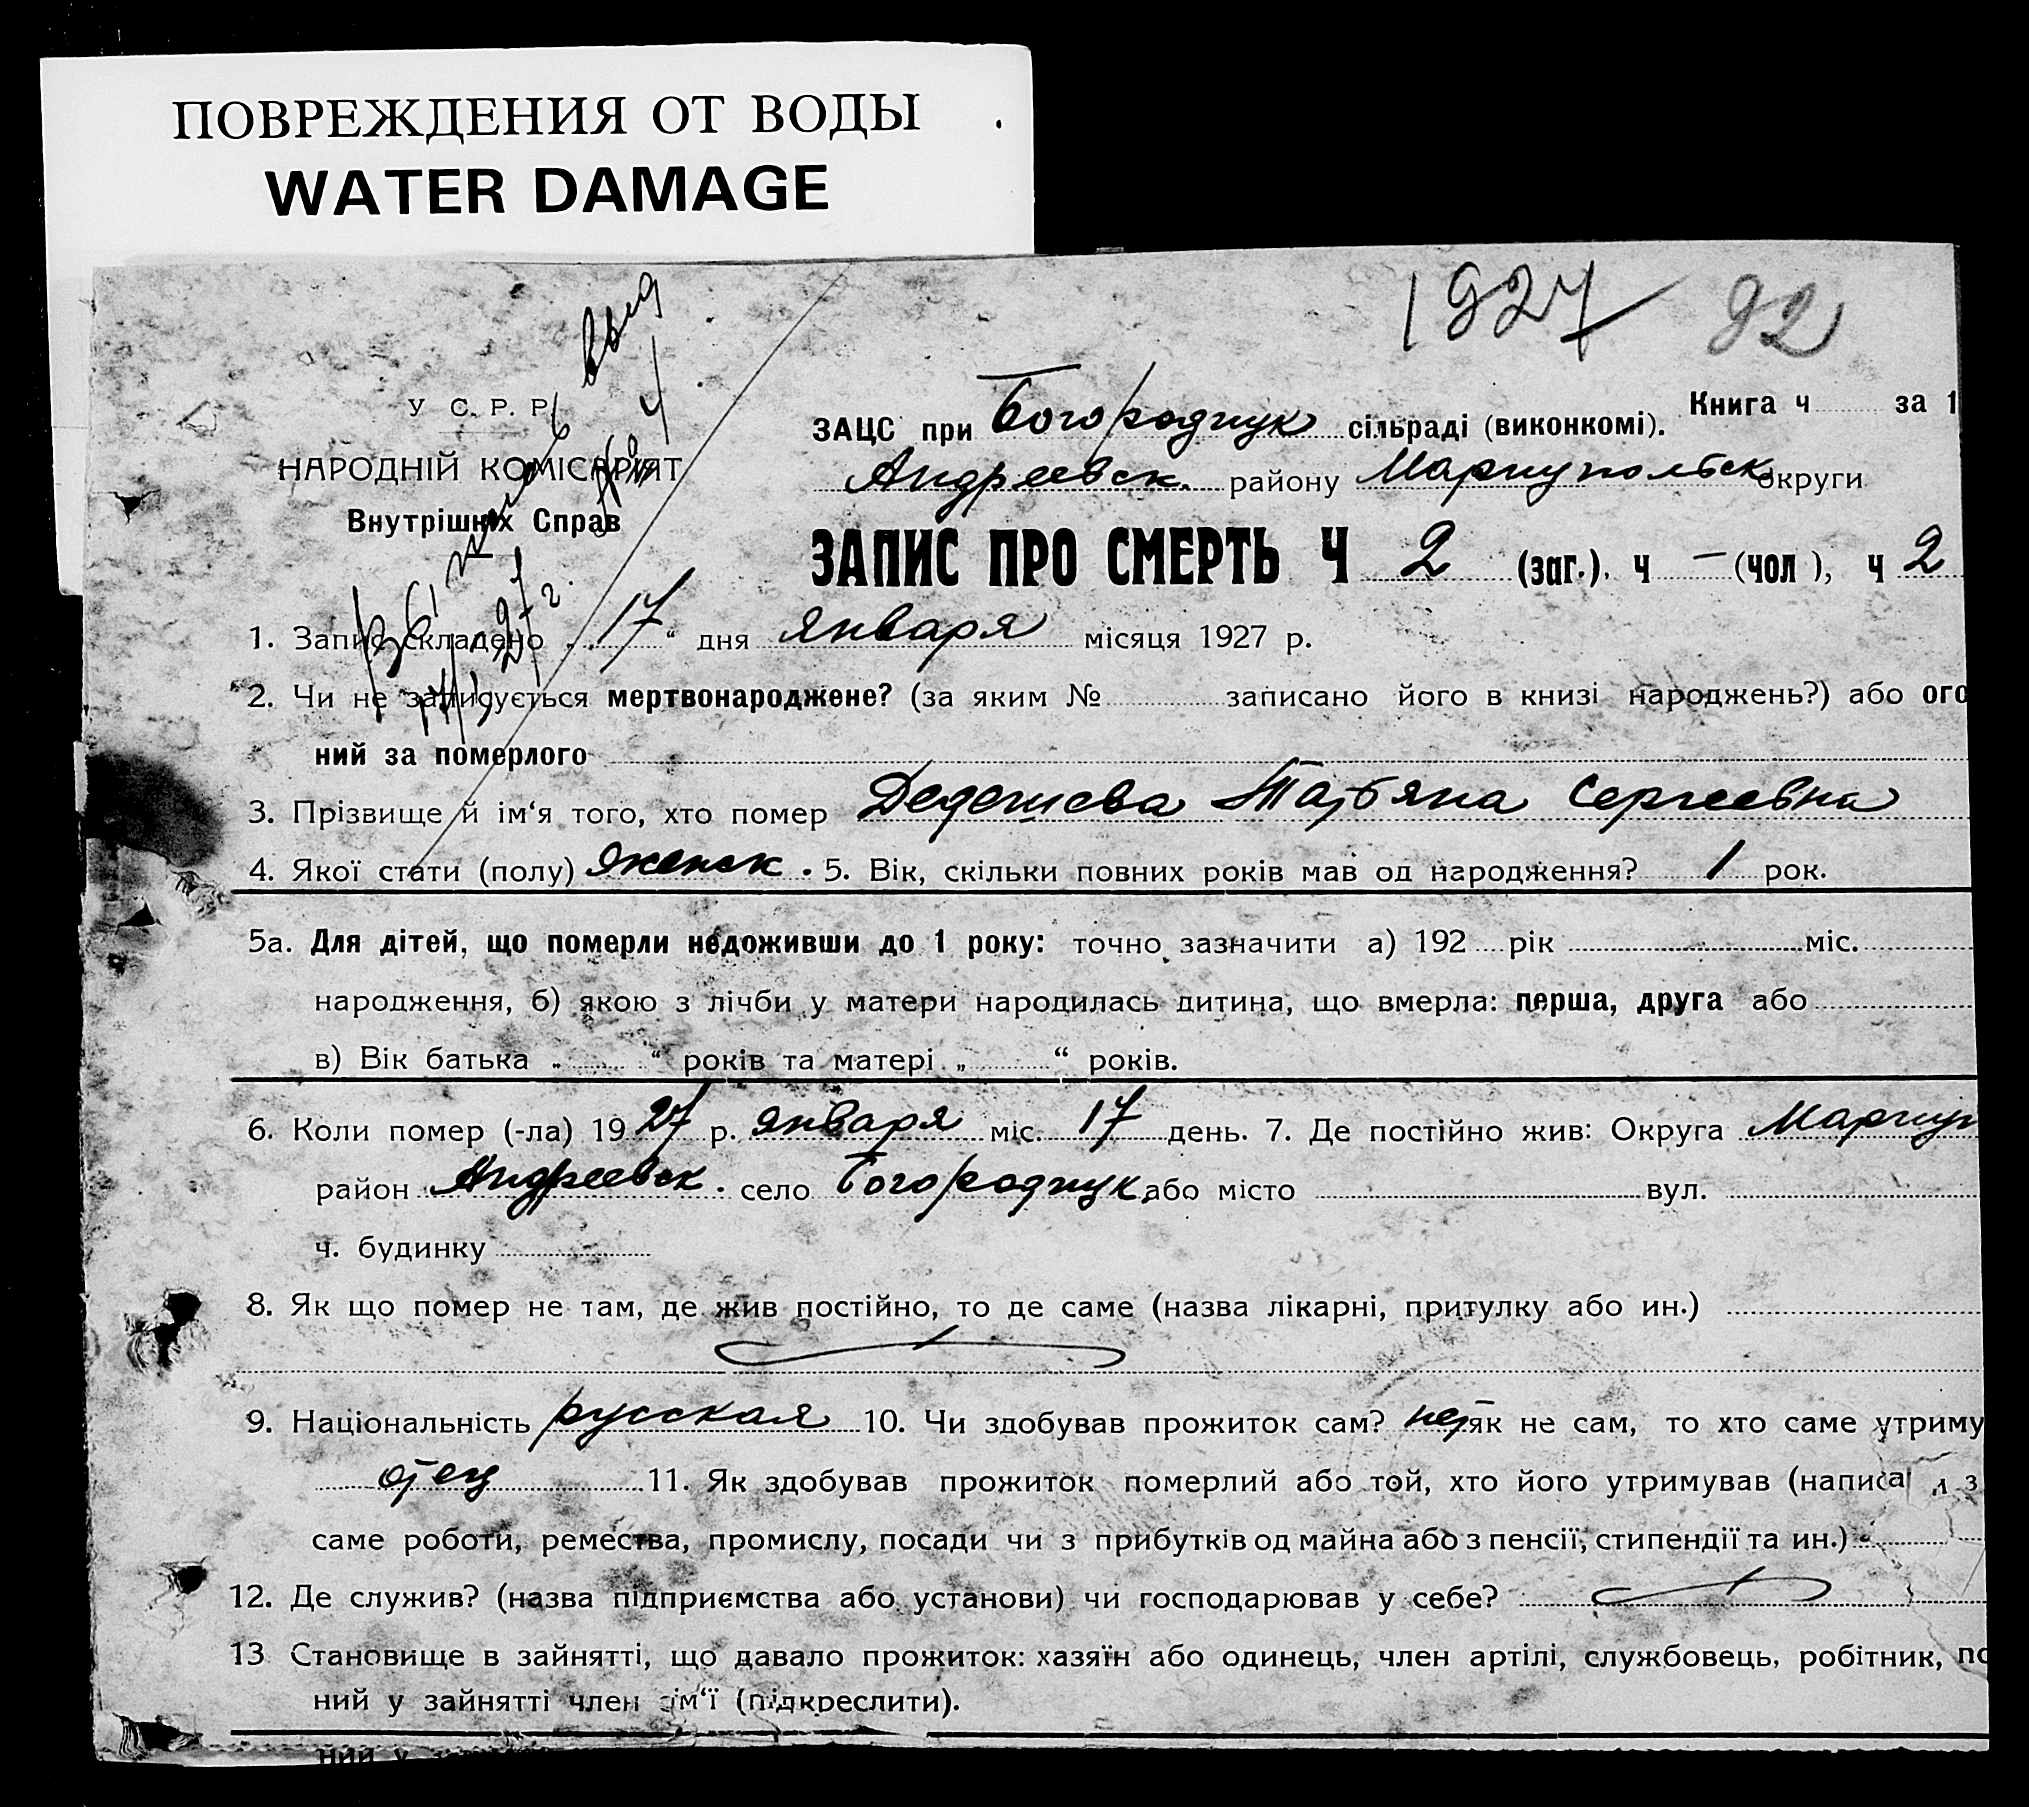 ПОВРЕЖДЕНИЯ ОТ ВОДЫ
WATER DAMAGE
1927 92
У С. Р. Р.
НАРОДНІЙ КОМІСАРІЯТ
Внутрішніх Справ
Книга ч за 1
ЗАЦС при Богородичук сільраді (виконкомі).
Андреевск. району Мариупольск округи
ЗАПИС ПРО СМЕРТЬ Ч 2 (заг.). ч — (чол ), ч 2
1. Запис складено 17 “ дня января місяця 1927 р.
2. Чи не записується мертвонароджене? (за яким № записано його в книзі народжень?) або ого
ний за померлого
3. Прізвище й ім‘я того, хто помер Татьяна Сергеевна
4. Якої стати (полу) женск. 5. Вік, скільки повних років мав од народження? 1 рок.
5а. Для дітей, що померли недоживши до 1 року: точно зазначити а) 192 рік міс.
народження, б) якою з лічби у матери народилась дитина, що вмерла: перша, друга або
в) Вік батька „ “ років та матері „ “ років.
6. Коли помер (-ла) 1927 р. января міс. 17 день. 7. Де постійно жив: Округа Мариуп
район Андреевск. село Богородичук. або місто вул.
ч. будинку
8. Як що помер не там, де жив постійно, то де саме (назва лікарні, притулку або ин.)
9. Національність русская 10. Чи здобував прожиток сам? нет як не сам, то хто саме утриму
отец 11. Як здобував прожиток померлий або той, хто його утримував (написа з
саме роботи, ремества, промислу, посади чи з прибутків од майна або з пенсії, стипендії та ин.)
12. Де служив? (назва підприємства або установи) чи господарював у себе?
13 Становище в зайнятті, що давало прожиток: хазяїн або одинець, член артілі, службовець, робітник, по
ний у зайнятті член сім‘ї (підкреслити).
ний у